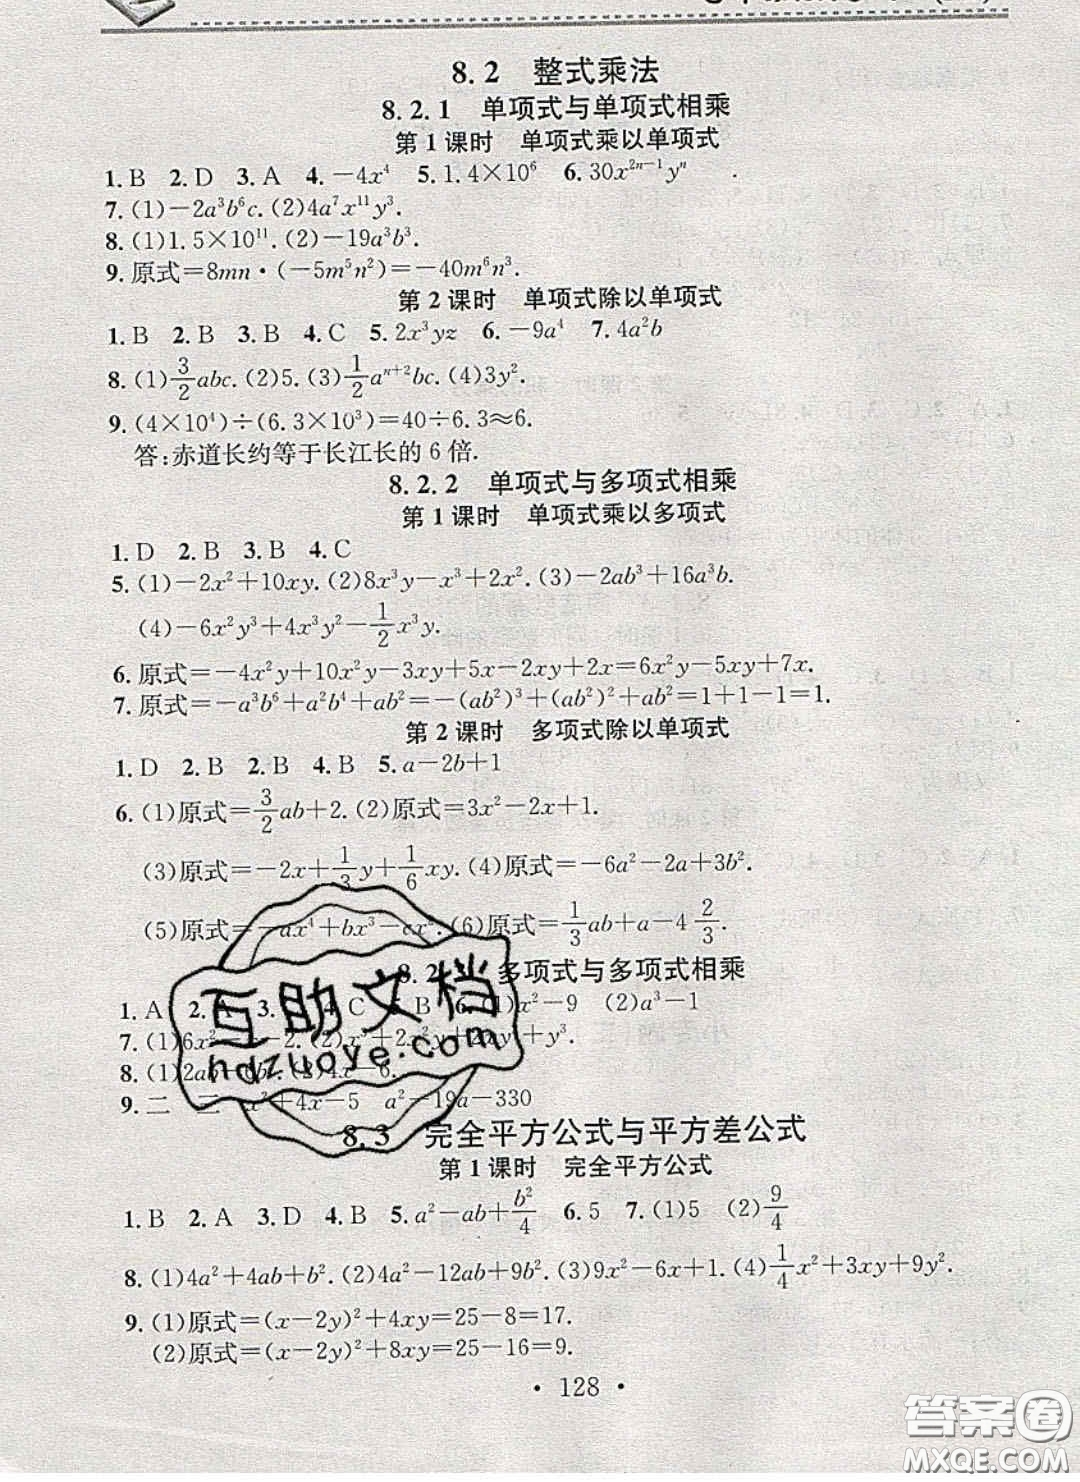 8.2 整式乘法
8.2.1 单项式与单项式相乘
第1课时 单项式乘以单项式
1.B 2.D 3.A 4.-4x⁴ 5.1.4×10⁶ 6.30x²ⁿ⁻¹yⁿ
7.(1)-2a³b⁶c.(2)4a⁷x¹¹y³.
8.(1)1.5×10¹¹.(2)-19a³b³.
9.原式=8mn·(-5m⁵n²)=-40m⁶n³.
第2课时 单项式除以单项式
1.B 2.B 3.B 4.C 5.2x³yz 6.-9a⁴ 7.4a²b
8.(1)3/2abc.(2)5.(3)1/2aⁿ⁺²bc.(4)3y².
9.(4×10⁴)÷(6.3×10³)=40÷6.3≈6.
答:赤道长约等于长江长的6倍.
8.2.2 单项式与多项式相乘
第1课时 单项式乘以多项式
1.D 2.B 3.B 4.C
5.(1)-2x²+10xy.(2)8x³y-x³+2x².(3)-2ab³+16a³b.
(4)-6x²y³+4x³y²-1/2x³y.
6.原式=-4x²y+10x²y-3xy+5x-2xy+2x=6x²y-5xy+7x.
7.原式=-a³b⁶+a²b⁴+ab²=-(ab²)³+(ab²)²+ab²=1+1-1=1.
第2课时 多项式除以单项式
1.D 2.B 2.B 4.B 5.a-2b+1
6.(1)原式=3/2ab+2.(2)原式=3x²-2x+1.
(3)原式=-2x+1/3y+1/6xy.(4)原式=-6a²-2a+3b².
(5)原式=-ax⁴+bx³-cx².(6)原式=1/3ab+a-4 2/3.
8.2 多项式与多项式相乘
1.A 2.A 3. 4.C 5.B 6.(1)x²-9 (2)a³-1
7.(1)6x² -2.(2)x³+2x²y+2xy²+y³.
8.(1)2ab (2)4x-6.
9.二 三 x²+4x-5 a²-19a-330
8.3 完全平方公式与平方差公式
第1课时 完全平方公式
1.B 2.A 3.D 4.B 5.a²-ab+b²/4 6.5 7.(1)5 (2)9/4
8.(1)4a²+4ab+b².(2)4a²-12ab+9b².(3)9x²-6x+1.(4)1/4x²+3xy+9y².
9.(1)原式=(x-2y)²+4xy=25-8=17.
(2)原式=(x-2y)²+8xy=25-16=9.
· 128 ·
互助文档
hdzuoye.com
答案圈
MXQE.COM